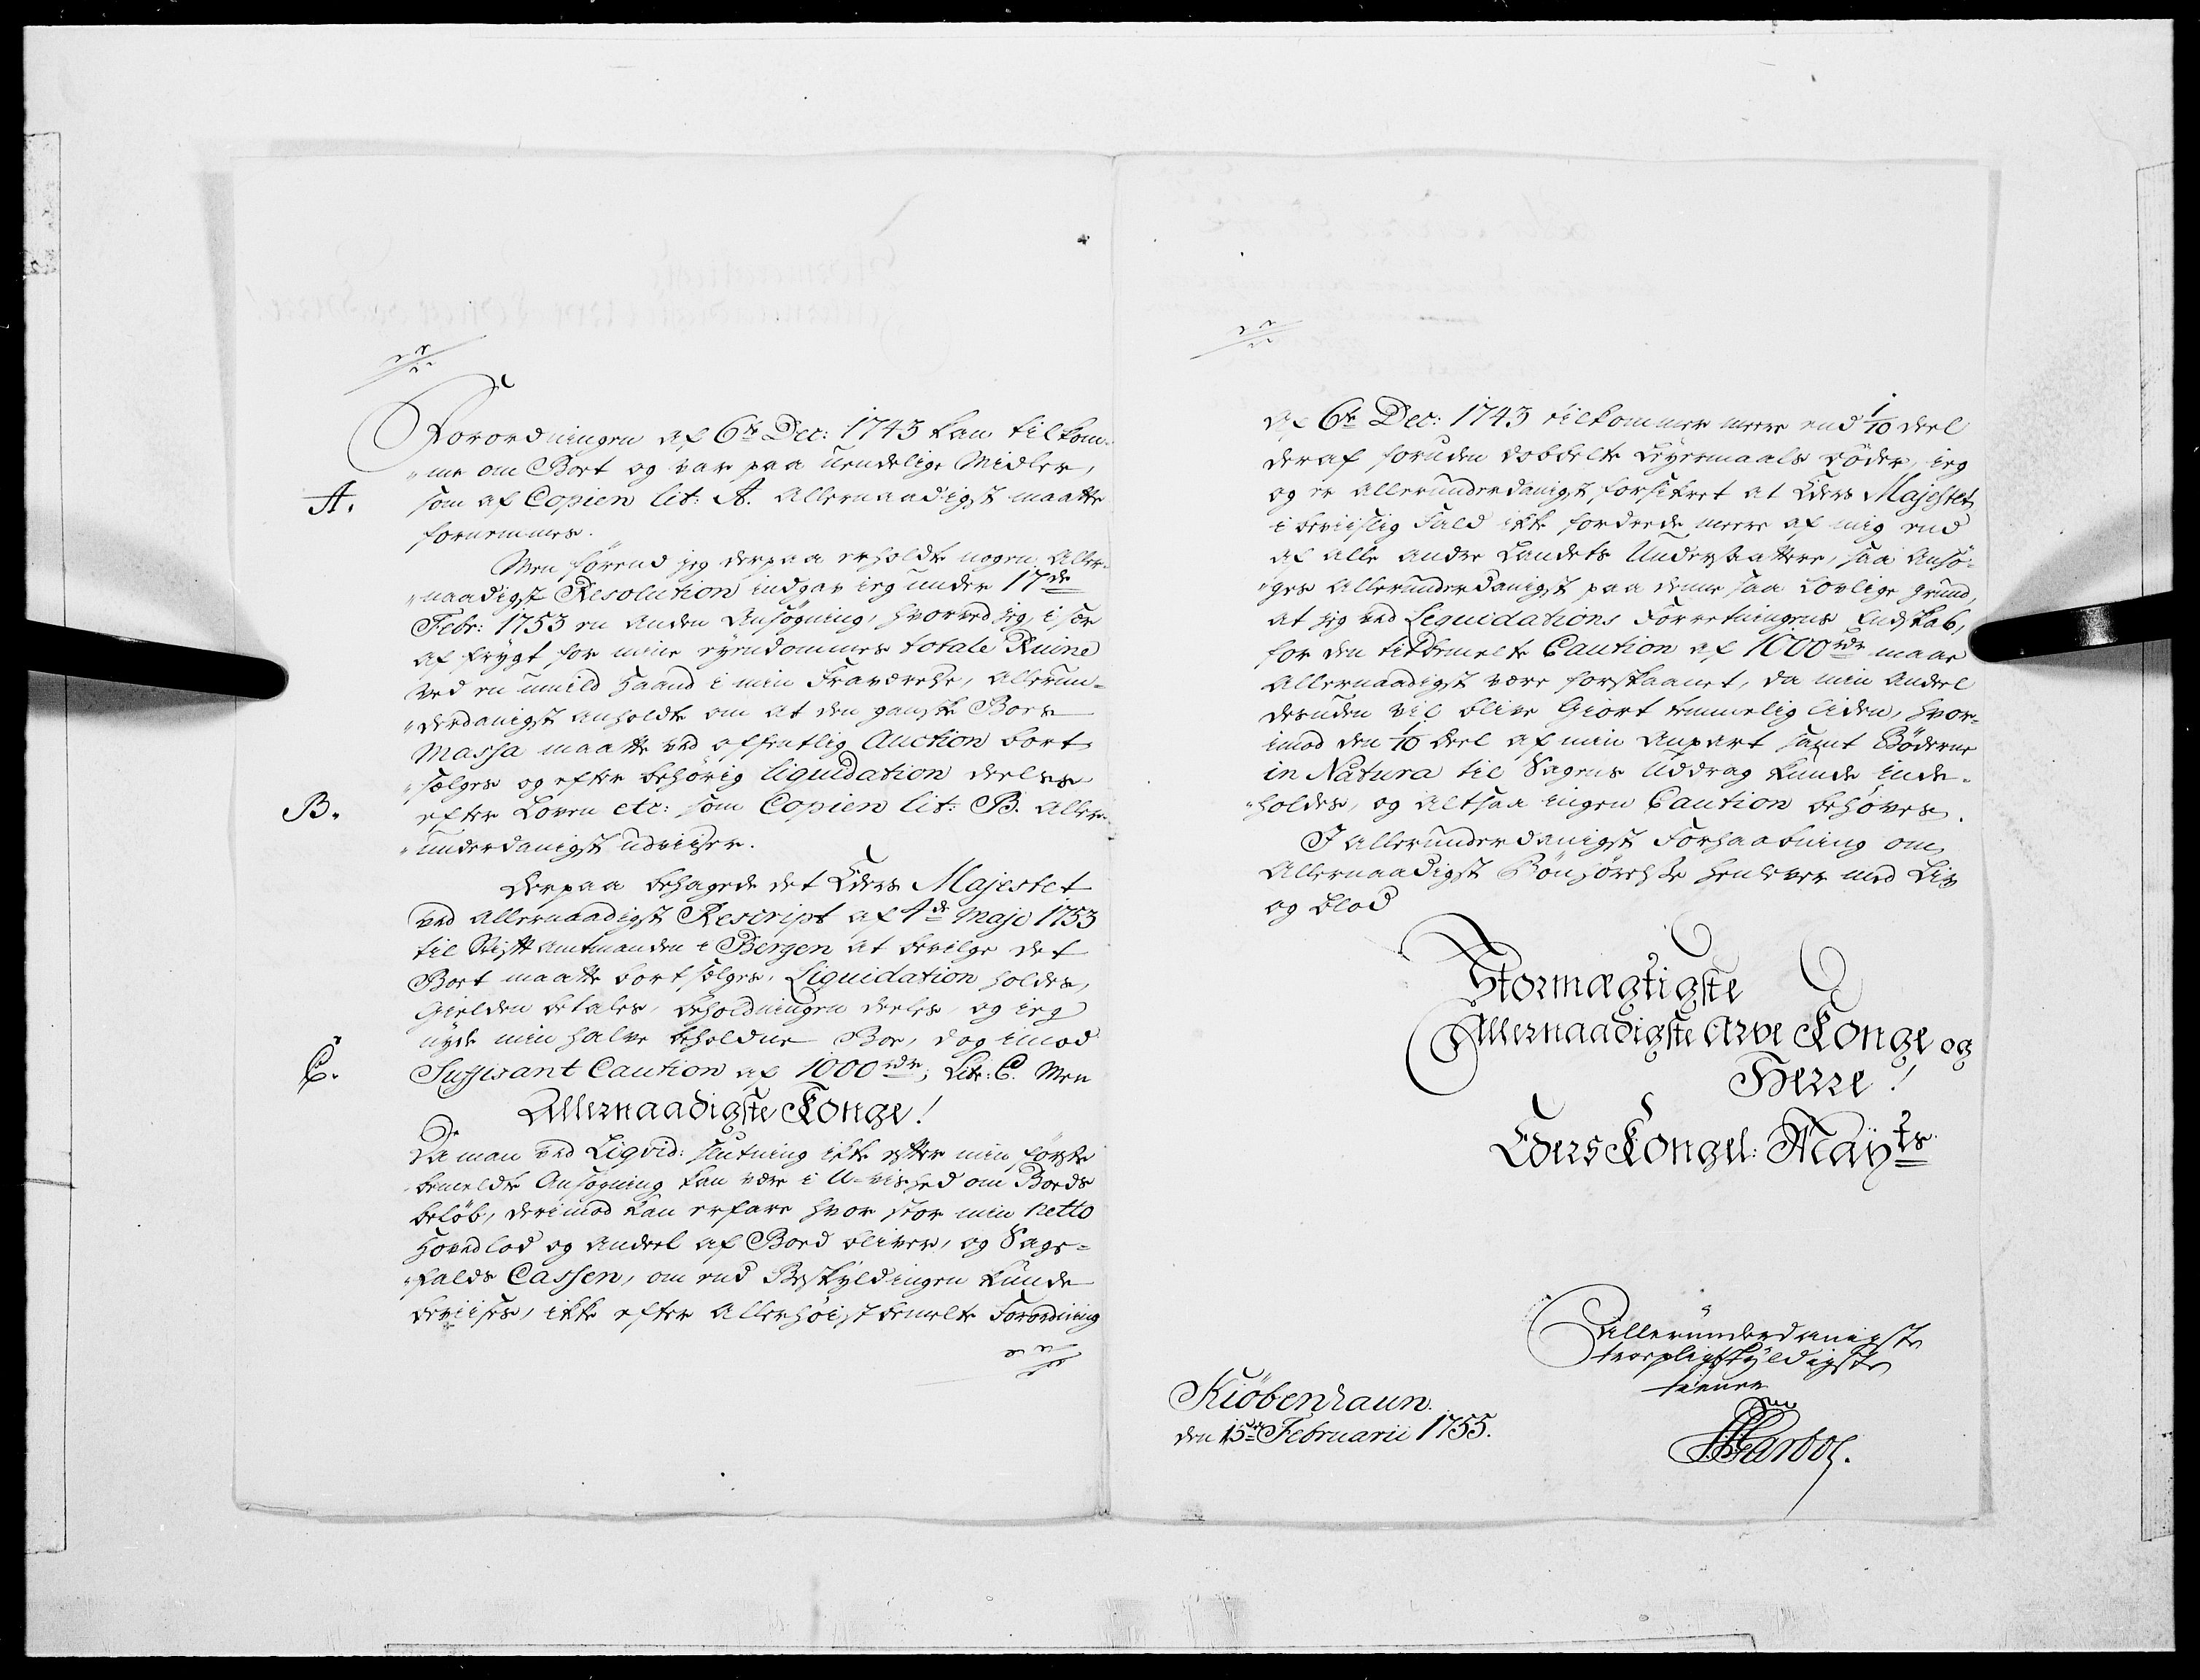 Forordningen af 6te Dec: 1743 kan tilkom-
"me om Boet og var paa uendelige Midler,
A. som af Copien lit: A. Allernaadigst maatte
fornemmes.
Men förend jeg derpaa erholdte nogen Aller-
"naadigst Resolution indgav ieg under 17de
Febr: 1753 en anden Ansögning, hvorved jeg, i sær
af frygt for mine eyendommes totale Ruine
ved en umild Haand i min Fraværelse, allerun-
"derdanigst anholdte om at den gandske Boes
Massa maatte ved offentlig Auction bort
"sælges og efter behörig liquidation deeles
B. efter Loven etc: som Copien lit: B. Aller-
"underdanigst udviiser.
Derpaa behagede det Eders Majestet
ved allernaadigst Rescript af 4de Maje 1753
til Stift Amtmanden i Bergen at bevilge det
Boet maatte bortsælges, Liquidation holdes,
Gielden betales, beholdningen deeles, og ieg
nyde min halve beholdne Boe, dog imod
C. Suffisant Caution af 1000 rdr; Litr: C. Men
Allernaadigste Konge!
Da man ved Liqvid: slutning ikke efter min förste
bemeldte Ansögning kan være i U-vished om Boeds
belöb, derimod kan erfare hvor stor min netto
Hovedlod og andeel af Boed bliver, og Sage-
"falds Cassen, om end Beskyldingen kunde
beviises, ikke efter Allerhöist bemelte Forordning
af 6te Dec: 1743 tilkommer meere end 1/10 deel
deraf foruden dobbelte Leyermaals böder, ieg
og er allerunderdanigst forsikret at Eders Majestet
i beviislig Fald ikke fordrede meere af mig end
af alle andre Landets Undersaattere, saa Ansö-
"ges allerunderdanigst paa denne saa lovlige grund,
at jeg ved Lequidations Forretningens Endskab,
for den titbemelte Caution af 1000 rdr maae
Allernaadigst være forskaanet, da min Andeel
desuden vil blive Giort temmelig liden, hvor-
imod den 1/10 deel af min Anpart samt Böderne
in Natura til Sagens Uddrag kunde inde-
"holdes, og altsaa ingen Caution behöves.
I allerunderdanigst Forhaabning om
Allernaadigst Bönhörelse henlever med Liv
og blod
Stormægtigste
Allernaadigste Arve Konge og
Herre!
Eders Kongel: Mayts
Allerunderdanigste
troepligtskyldigste
tienere
Kiöbenhaun.
den 15de Februarii 1755.